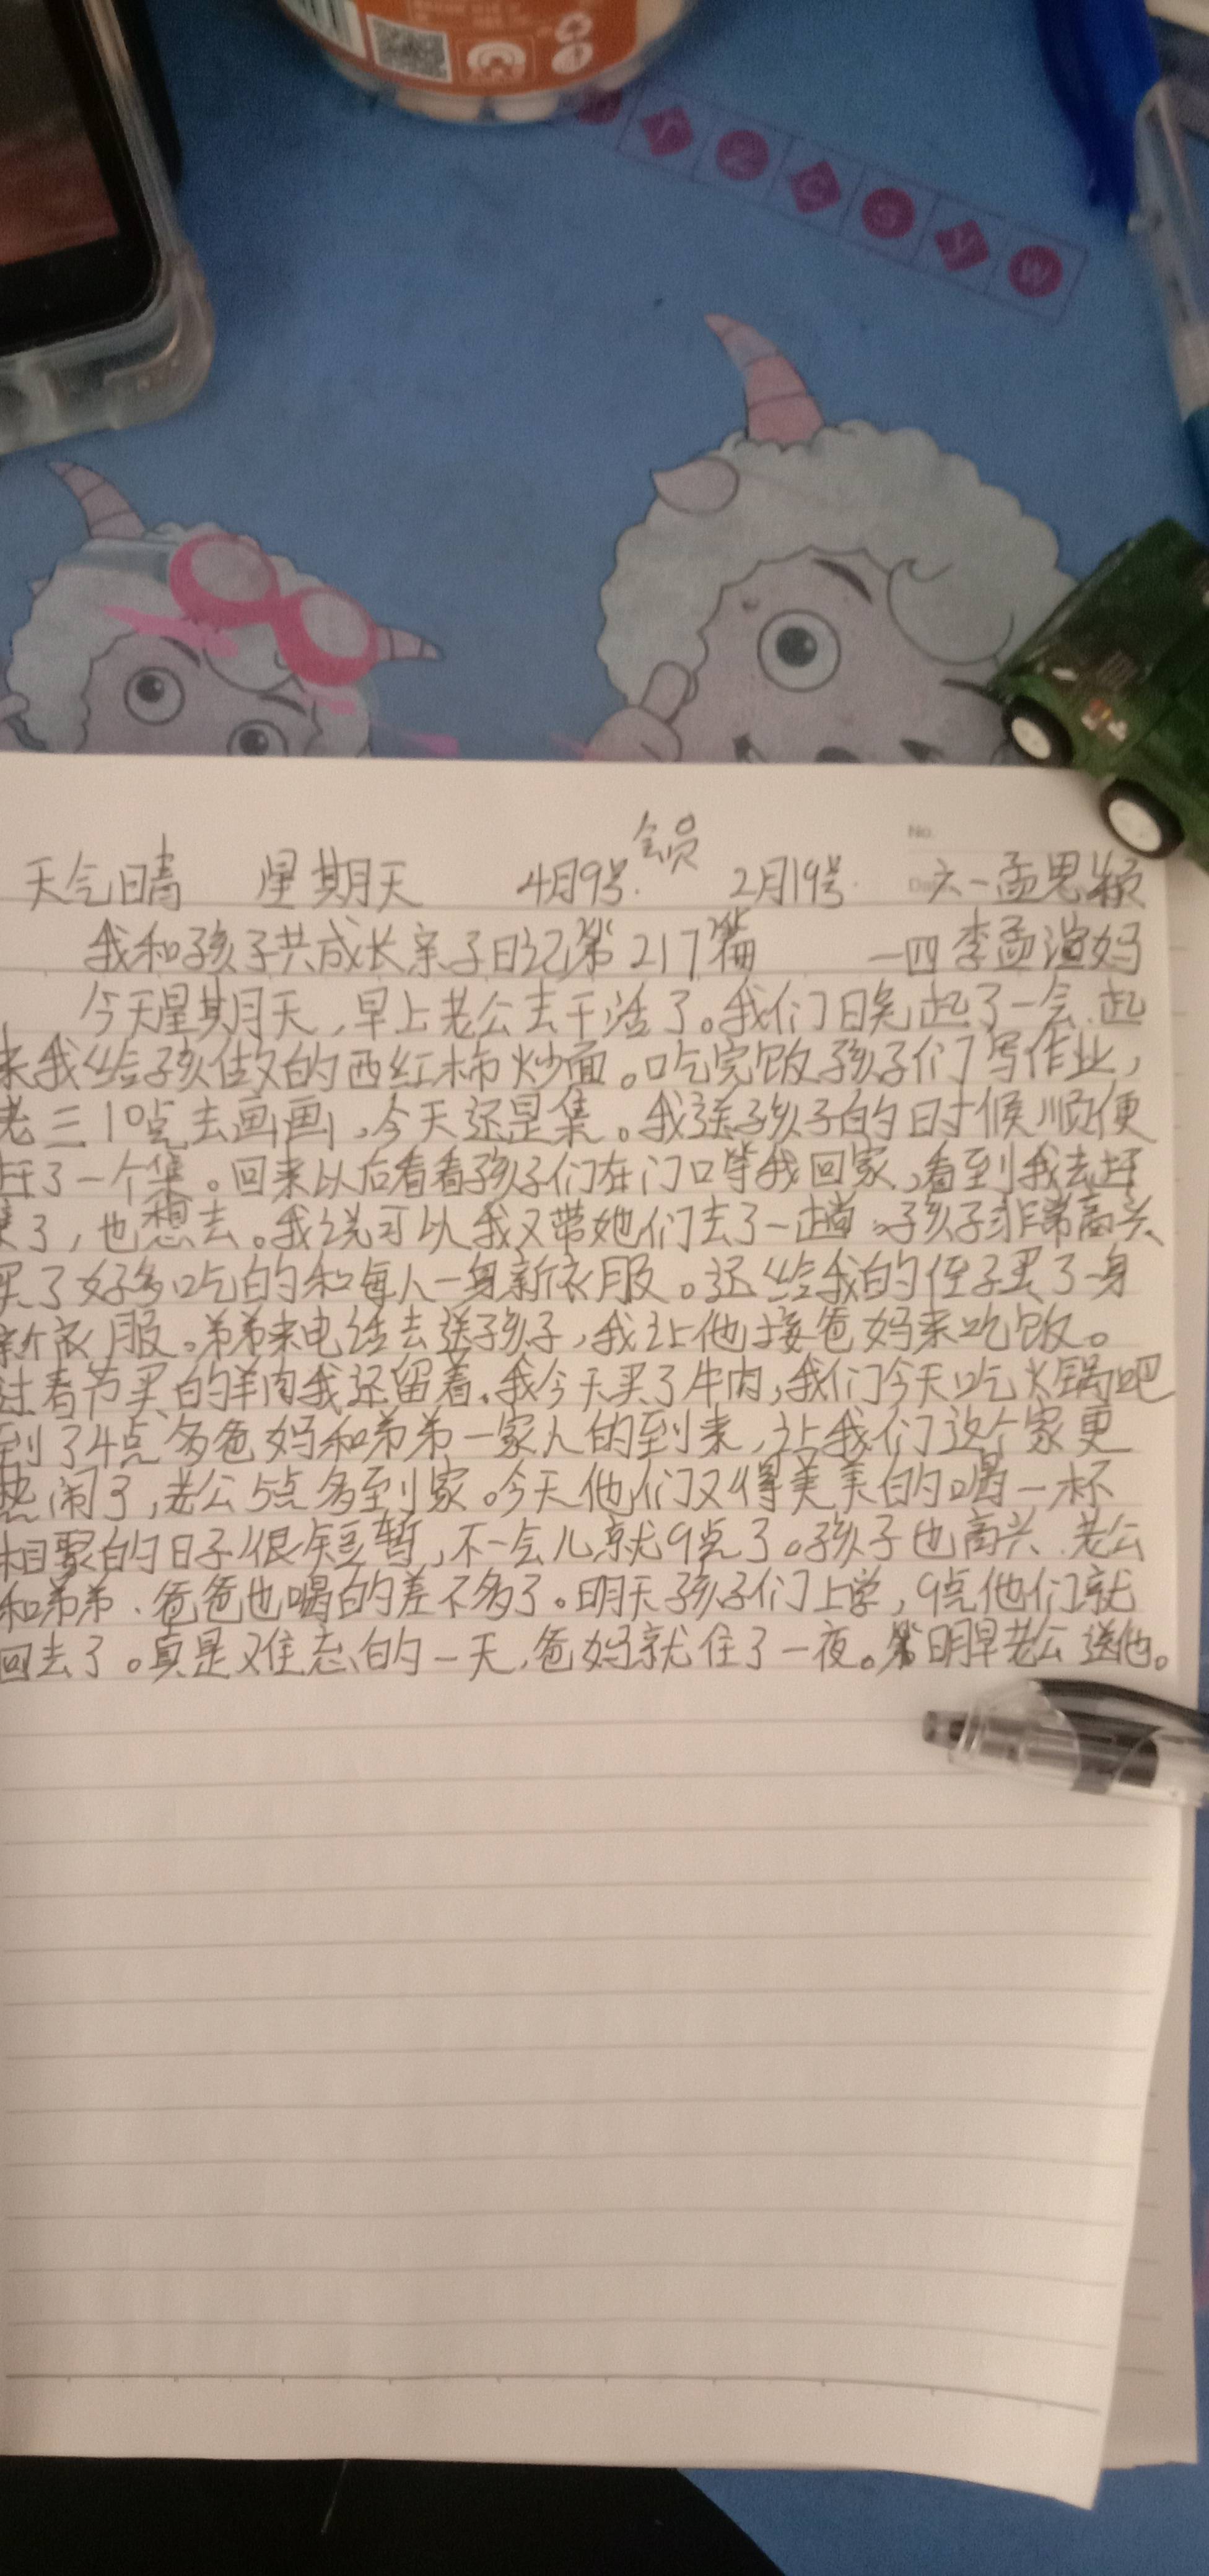 r 2 c s y w
No.
会员
天气晴 星期天 4月9号. 2月19号. 六一孟思颖
我和孩子共成长亲子日记第217篇 一四李孟滢妈
今天星期天,早上老公去干活了。我们晚起了一会.起
来我给孩做的西红柿炒面。吃完饭孩子们写作业,
老三10点去画画,今天还是集。我送孩子的时候顺便
赶了一个集。回来以后看看孩子们在门口等我回家,看到我去赶
集了,也想去。我说可以我又带她们去了一趟。孩子非常高兴
买了好多吃的和每人一身新衣服。还给我的侄子买了一身
新衣服。弟弟来电话去送孩子,我让他接爸妈来吃饭。
过春节买的羊肉我还留着,我今天买了牛肉,我们今天吃火锅吧
到了4点多爸妈和弟弟一家人的到来,让我们这个家更
热闹了,老公5点多到家。今天他们又得美美的喝一杯
相聚的日子很短暂,不一会儿就9点了。孩子也高兴.老公
和弟弟、爸爸也喝的差不多了。明天孩子们上学,9点他们就
回去了。真是难忘的一天,爸妈就住了一夜。明早老公送他。